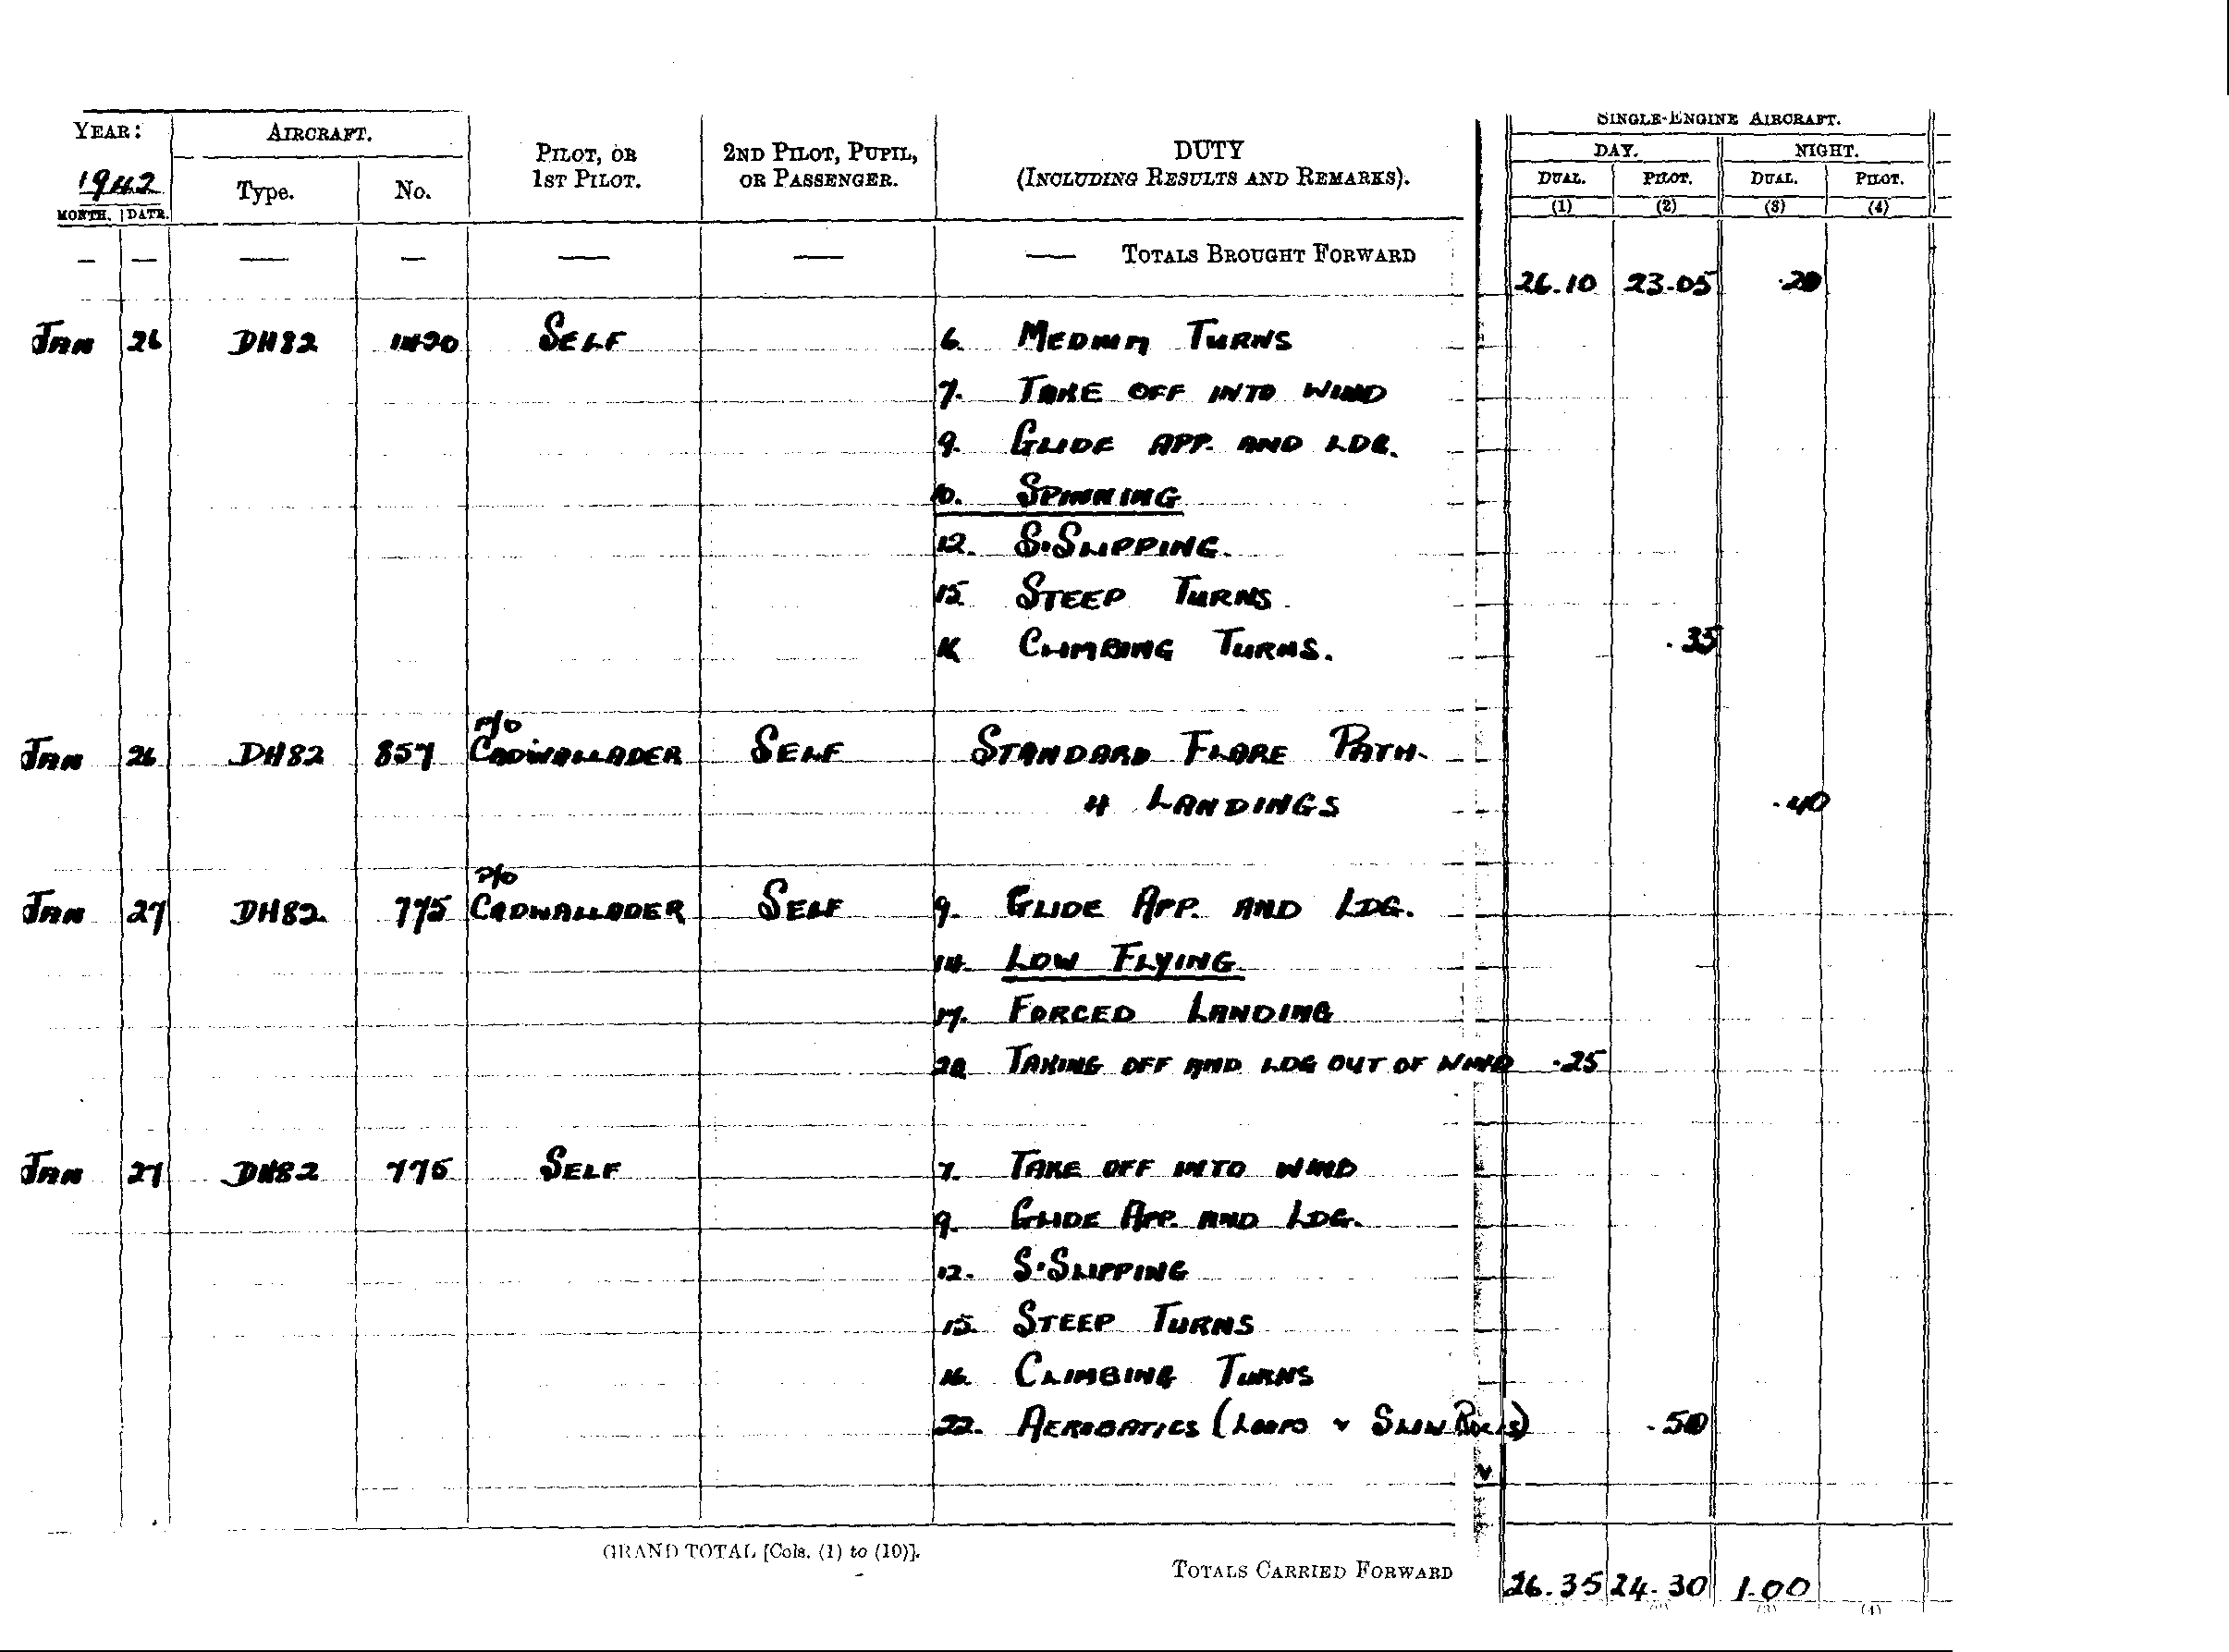 YEAR: AIRCRAFT. PILOT, OR 1ST PILOT. 2ND PILOT, PUPIL, OR PASSENGER. DUTY (INCLUDING RESULTS AND REMARKS). SINGLE-ENGINE AIRCRAFT.
DAY. NIGHT.
1942 Type. No. DUAL. PILOT. DUAL. PILOT.
MONTH. DATE. (1) (2) (3) (4)
— — — — — — — TOTALS BROUGHT FORWARD
26.10 23.05 .20
JAN 26 DH82 1420 SELF 6. MEDIUM TURNS
7. TAKE OFF INTO WIND
9. GLIDE APP. AND LDG.
10. SPINNING
12. S.SLIPPING.
15 STEEP TURNS
16 CLIMBING TURNS. .35
P/O
JAN 26 DH82 857 CADWALLADER SELF STANDARD FLARE PATH-
4 LANDINGS .40
P/O
JAN 27 DH82. 775 CADWALLADER SELF 9. GLIDE APP. AND LDG.
14. LOW FLYING
17. FORCED LANDING
20 TAKING OFF AND LDG OUT OF WIND .25
JAN 27 DH82 775 SELF 7. TAKE OFF INTO WIND
9. GLIDE APP. AND LDG.
12. S.SLIPPING
15. STEEP TURNS
16. CLIMBING TURNS
22. AEROBATICS (LOOPS & SLOW ROLLS) .50
GRAND TOTAL [Cols. (1) to (10)].
TOTALS CARRIED FORWARD 26.35 24.30 1.00
(3) (4)